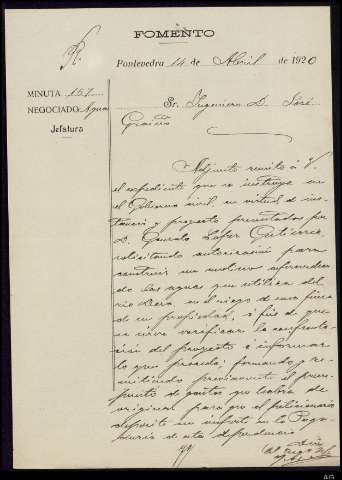 FOMENTO
Pontevedra 14 de Abril de 1920
MINUTA 157
NEGOCIADO Aguas
Jefatura
Sr. Ingeniero D. José
Graiño
Adjunto remito á V.
el expediente que se instruye en
el Gobierno civil en virtud de ins-
tancia y proyecto presentados por
D. Gonzalo López Gutiérrez
solicitando autorización para
construir un molino aprovechan
do las aguas que utiliza del
río Deza en el riego de una finca
de su propiedad, á fin de que
se sirva verificar la confronta-
ción del proyecto é informar
lo que proceda; formando y re-
mitiendo previamente el presu-
puesto de gastos que habrá de
originar para que el peticionario
deposite su importe en la Paga-
duría de esta dependencia.
AG